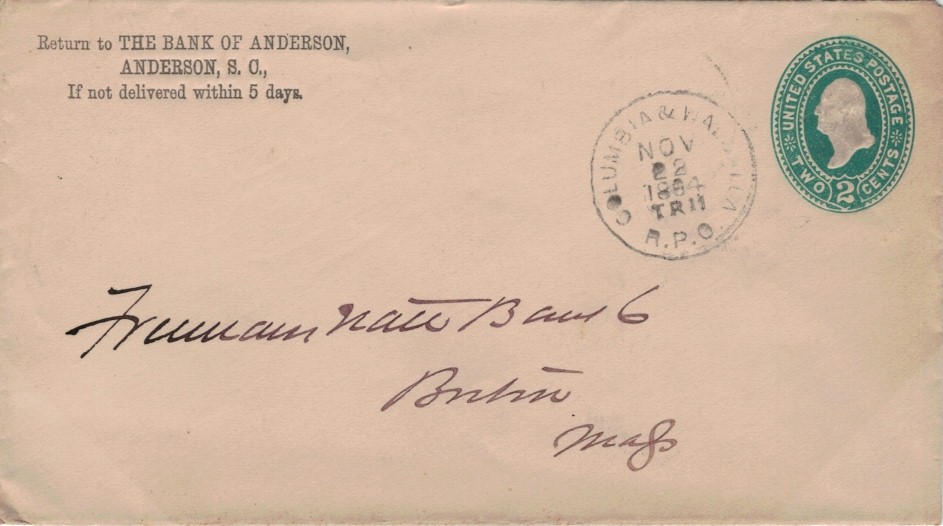 Return to THE BANK OF ANDERSON,
ANDERSON, S. C.,
If not delivered within 5 days.
UNITED STATES POSTAGE
TWO 2 CENTS
COLUMBIA & WALHALLA
NOV
22
1894
TR 11
R.P.O.
Freeman Natl Bank
Boston
Mass